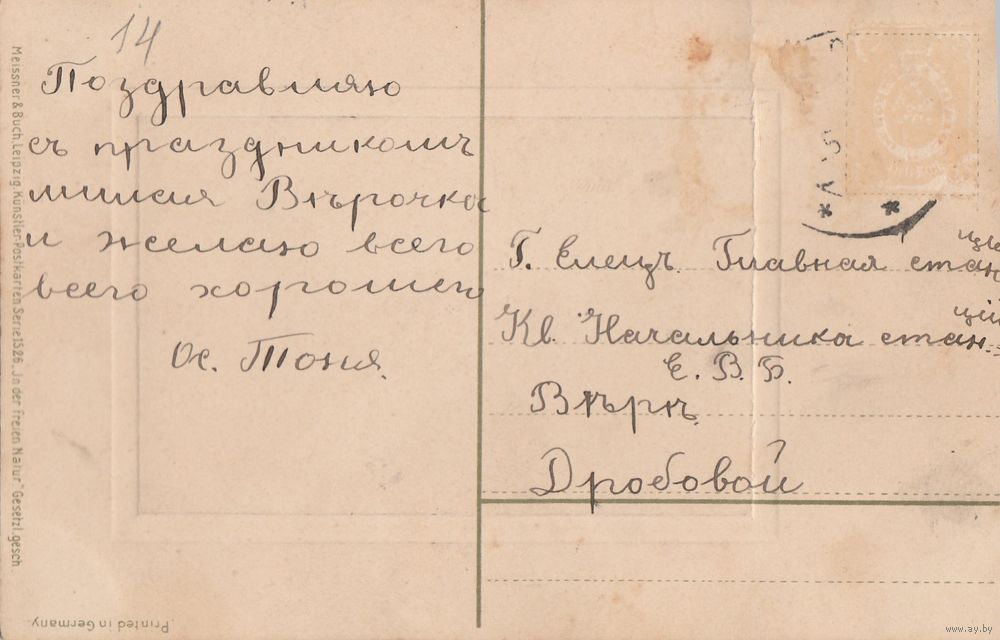 14
Поздравляю
съ праздникомъ
милая Вѣрочка
и желаю всего
всего хорошего
Ос. Тоня.
Г. Елецъ Главная станція
Кв. Начальника станцій
Е. В. Б.
Вѣрѣ
Дробовой
Meissner & Buch, Leipzig, Künstler-Postkarten Serie 1526. „In der freien Natur" Gesetzl. gesch.
Printed in Germany.
www.ay.by